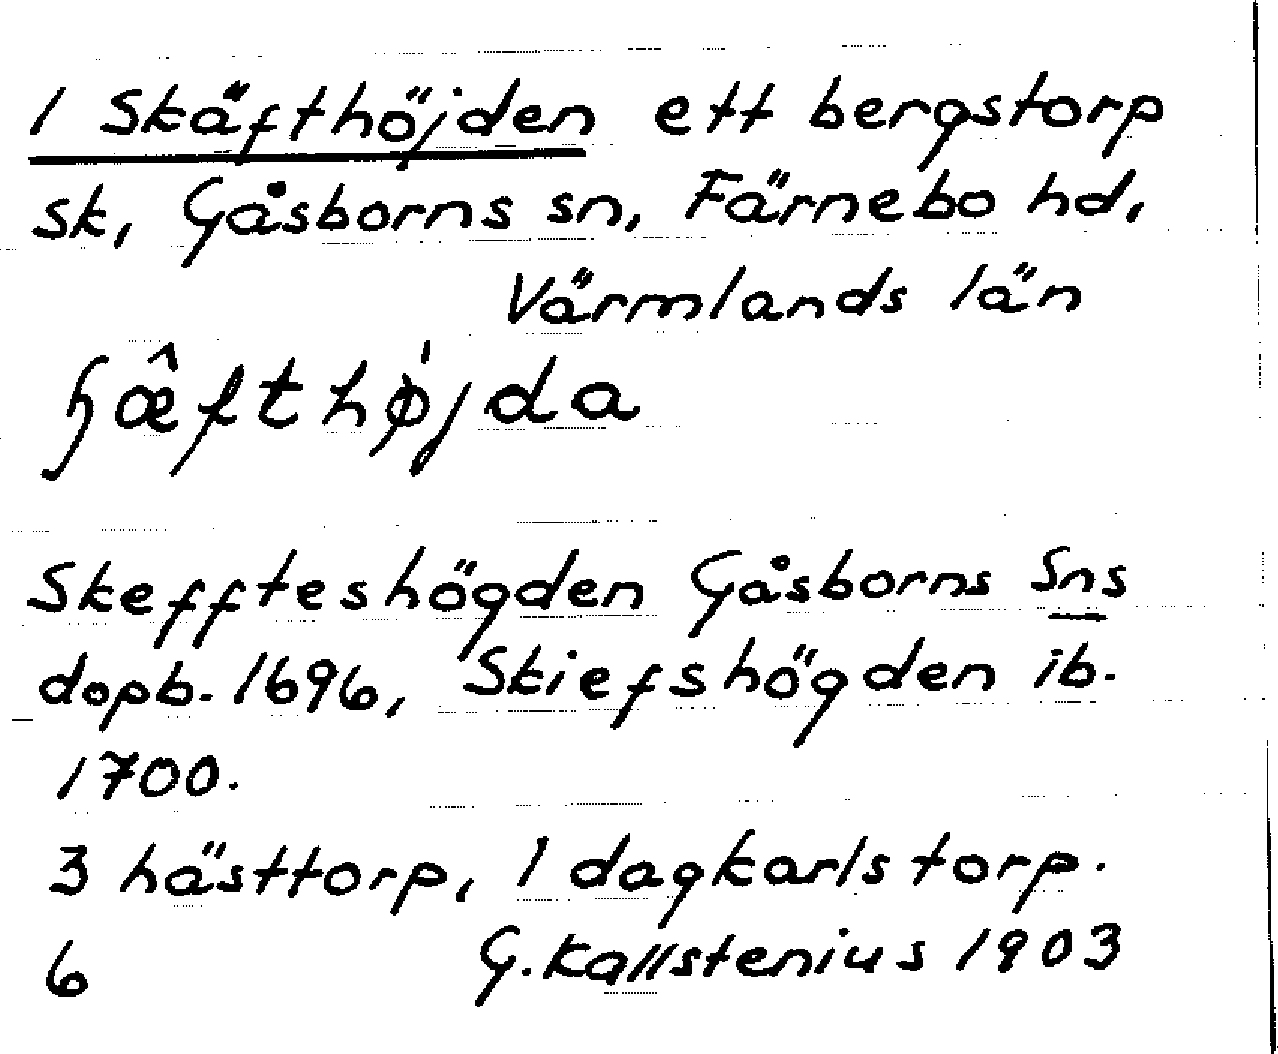 1 Skäfthöjden ett bergstorp
sk, Gåsborns sn, Färnebo hd,
Värmlands län
ʃæ̂fthø̍jda
Skeffteshögden Gåsborns Sns
dopb. 1696, Skiefshögden ib.
1700.
3 hästtorp, 1 dagkarlstorp.
6 G. Kallstenius 1903